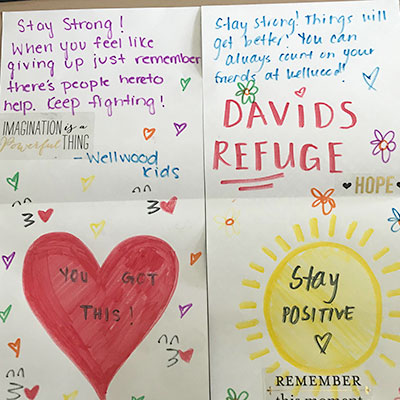 Stay Strong!
When you feel like
giving up just remember
there's people here to
help. Keep fighting!
IMAGINATION is a
Powerful THING
- Wellwood
kids
Stay strong! Things will
get better! You can
always count on your
friends at Wellwood!!
DAVIDS
REFUGE
HOPE
YOU GOT
THIS!
Stay
POSITIVE
REMEMBER
this moment